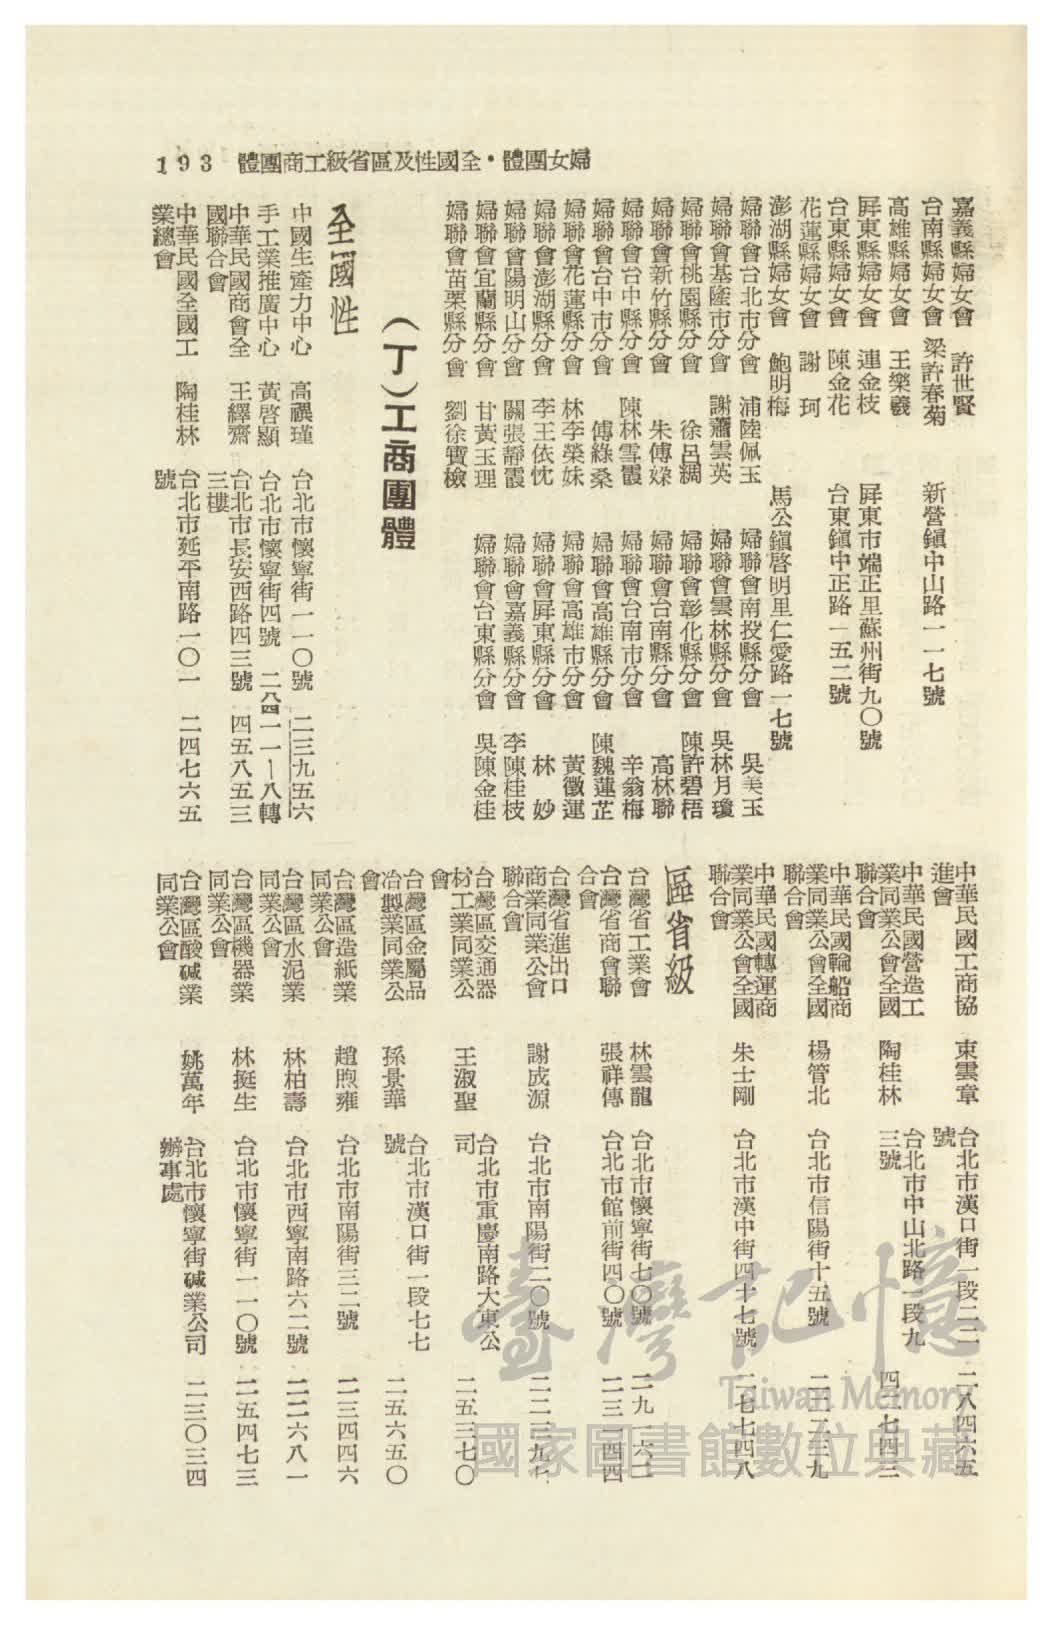 193 體團商工級省區及性國全•體團女婦
嘉義縣婦女會 許世賢
台南縣婦女會 梁許春菊 新營鎮中山路一一七號
高雄縣婦女會 王樂羲
屏東縣婦女會 連金枝 屏東市端正里蘇州街九〇號
台東縣婦女會 陳金花 台東鎮中正路一五二號
花蓮縣婦女會 謝珂
澎湖縣婦女會 鮑明梅 馬公鎮啓明里仁愛路一七號
婦聯會台北市分會 浦陸佩玉 婦聯會南投縣分會 吳美玉
婦聯會基隆市分會 謝蕭雲英 婦聯會雲林縣分會 吳林月瓊
婦聯會桃園縣分會 徐呂綢 婦聯會彰化縣分會 陳許碧梧
婦聯會新竹縣分會 朱傅㛦 婦聯會台南縣分會 高林聯
婦聯會台中縣分會 陳林雪霞 婦聯會台南市分會 辛翁梅
婦聯會台中市分會 傅綠桑 婦聯會高雄縣分會 陳魏蓮芷
婦聯會花蓮縣分會 林李榮妹 婦聯會高雄市分會 黃徵運
婦聯會澎湖縣分會 李王依忱 婦聯會屏東縣分會 林妙
婦聯會陽明山分會 關張靜霞 婦聯會嘉義縣分會 李陳桂枝
婦聯會宜蘭縣分會 甘黃玉理 婦聯會台東縣分會 吳陳金桂
婦聯會苗栗縣分會 劉徐寶檢
(丁)工商團體
全國性
中國生產力中心 高禩瑾 台北市懷寧街一一〇號 二三九五六
手工業推廣中心 黃啓顯 台北市懷寧街四號 二八四一一—八轉
中華民國商會全 王繹齋 台北市長安西路四三號 四五八五三
國聯合會 三樓
中華民國全國工 陶桂林 台北市延平南路一〇一 二四七六五
業總會 號
中華民國工商協 束雲章 台北市漢口街一段二二 二八四六五
進會 號
中華民國營造工 陶桂林 台北市中山北路一段九 四二七四三
業同業公會全國 三號
聯合會
中華民國輪船商 楊管北 台北市信陽街十五號 二二二三九
業同業公會全國
聯合會
中華民國轉運商 朱士剛 台北市漢中街四十七號 二七七四八
業同業公會全國
聯合會
區省級
台灣省工業會 林雲龍 台北市懷寧街七〇號
台灣省商會聯 張祥傳 台北市館前街四〇號 二三一四四
合會
台灣省進出口 謝成源 台北市南陽街二〇號
商業同業公會
聯合會
台灣區交通器 王淑聖 台北市重慶南路大東公 二五三七〇
材工業同業公 司
會
台灣區金屬品 孫景華 台北市漢口街一段七七 二五六五〇
冶製業同業公 號
會
台灣區造紙業 趙煦雍 台北市南陽街三二號 二三四四六
同業公會
台灣區水泥業 林柏壽 台北市西寧南路六二號 二二六八一
同業公會
台灣區機器業 林挺生 台北市懷寧街一一〇號 二五四七三
同業公會
台灣區酸碱業 姚萬年 台北市懷寧街碱業公司 二三〇三四
同業公會 辦事處
臺灣記憶
Taiwan Memory
國家圖書館數位典藏